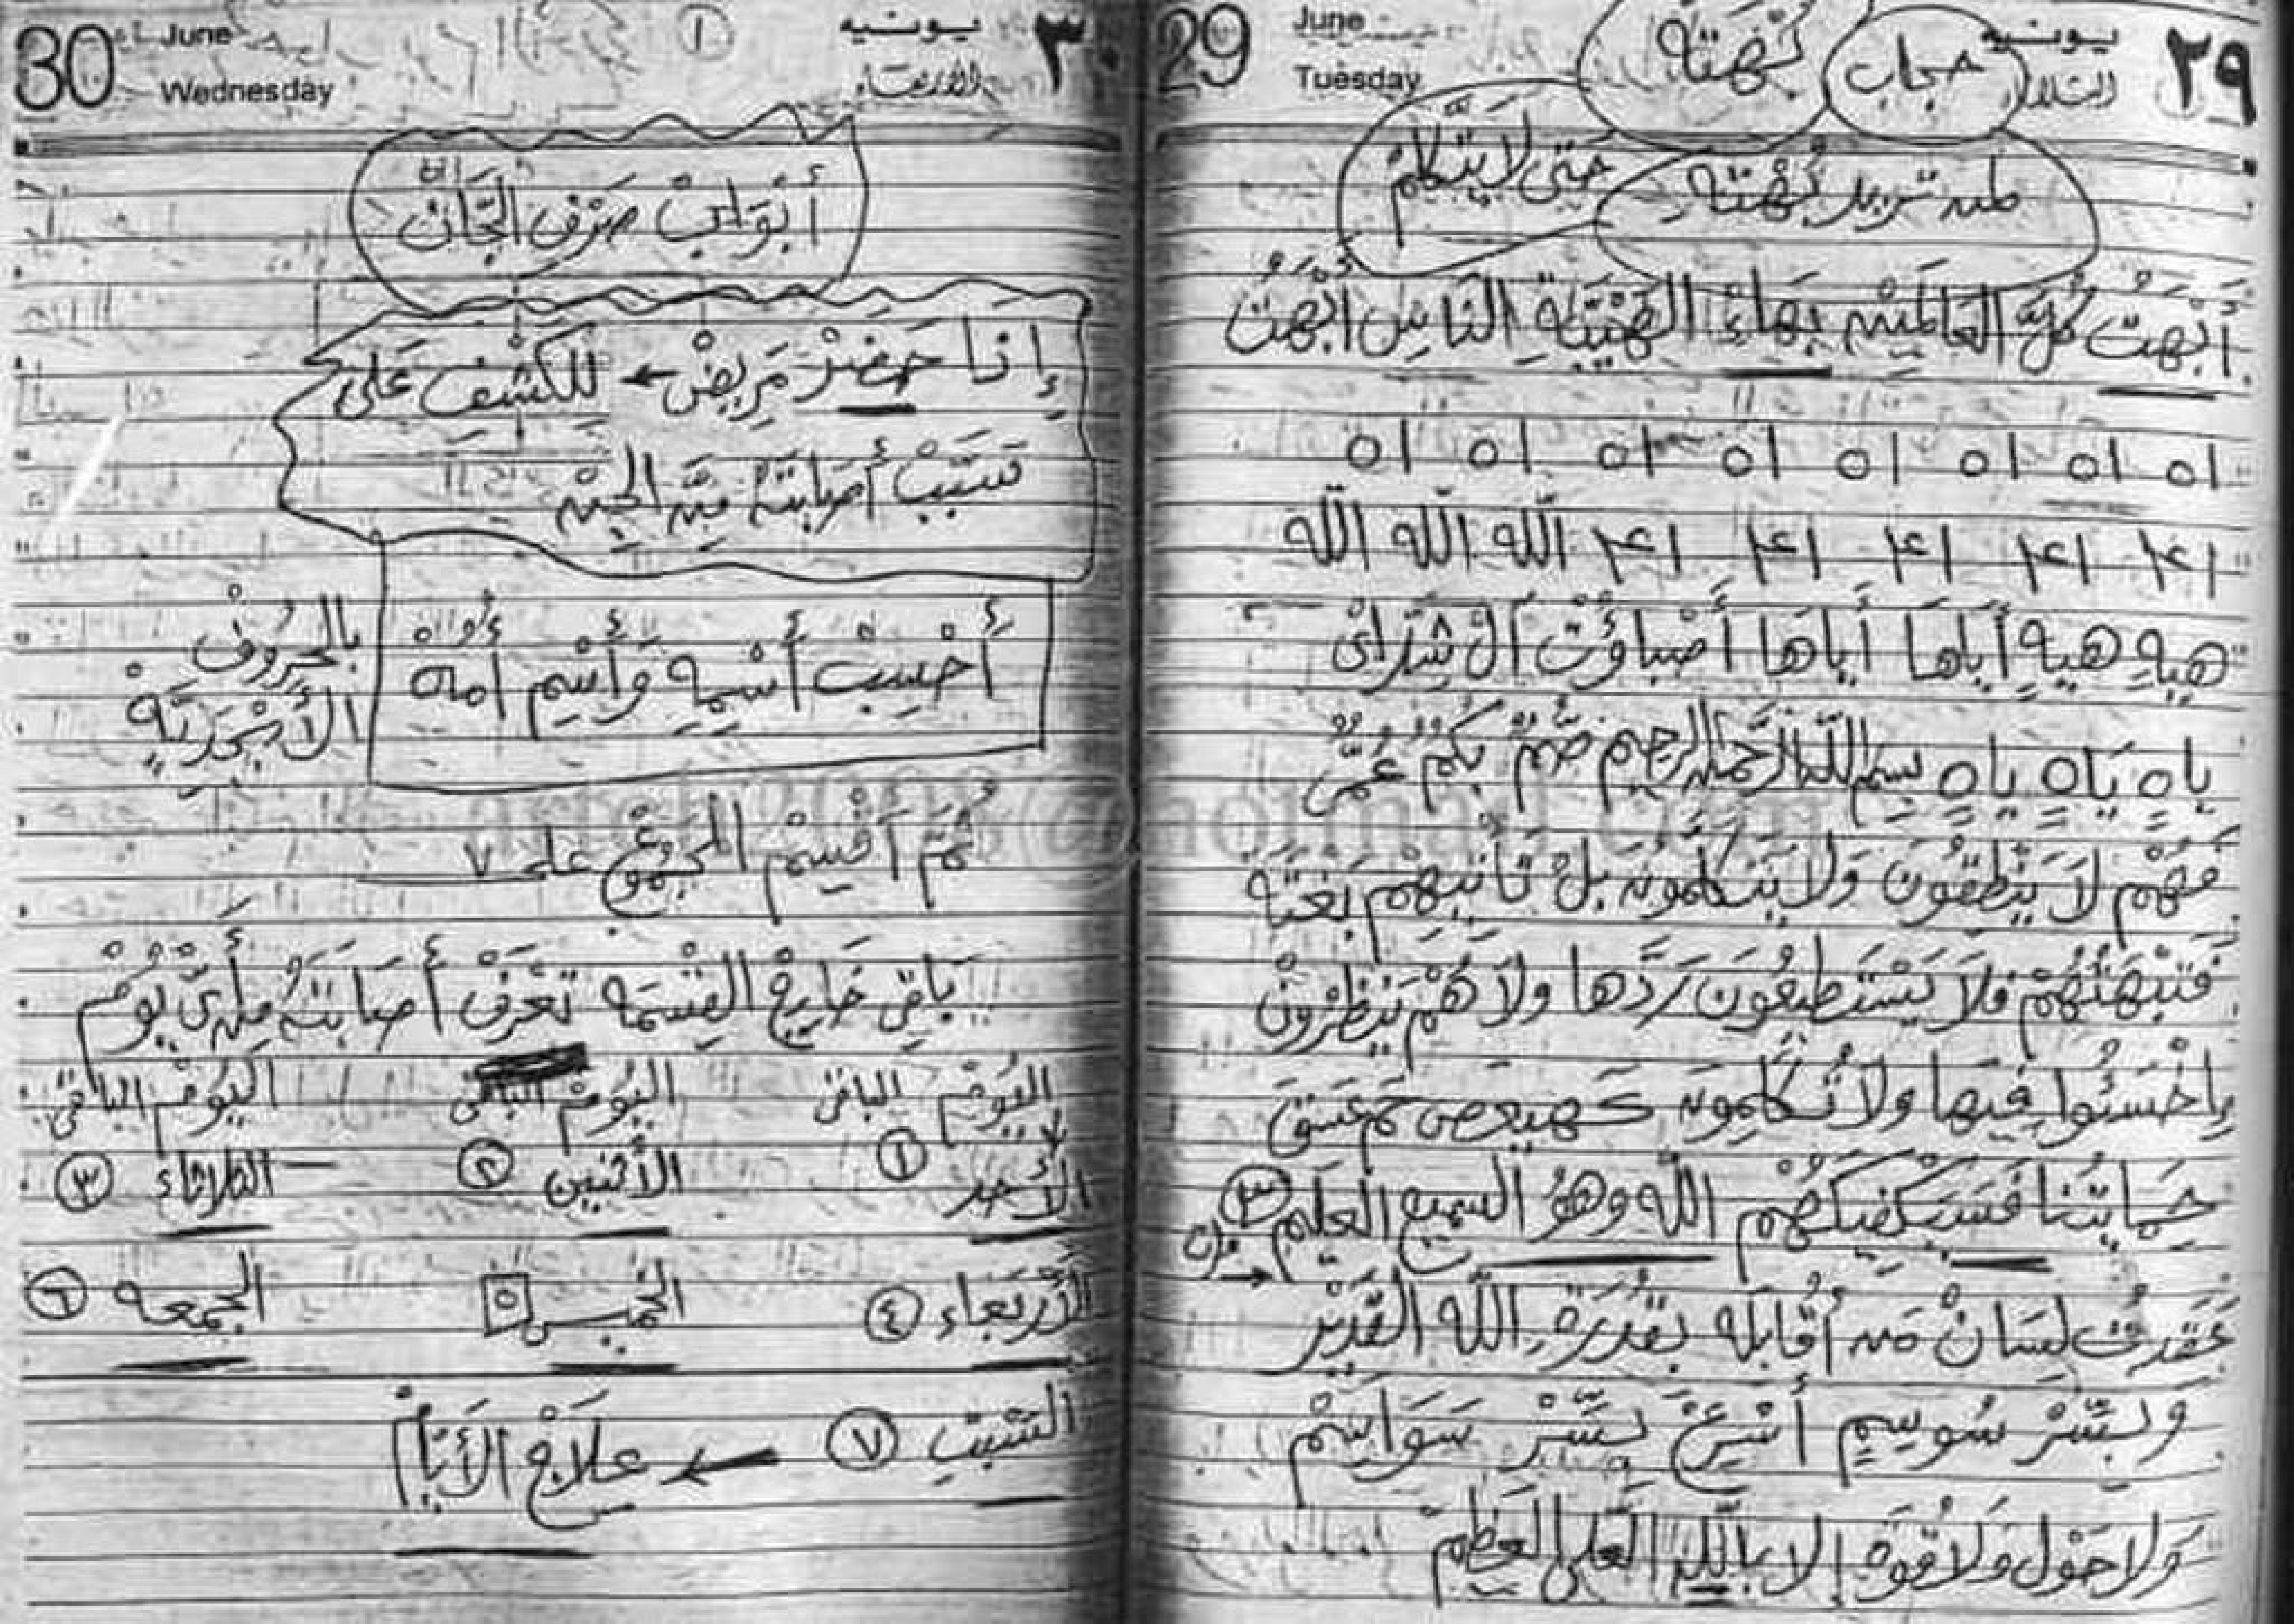 ٢٩ يونيه الثلاثاء June Tuesday 29
حجاب
لمن تريد
حتى لا يتكلم
أبهت كل العالمين بهاء الهيتية الناس أبهت
اه اه اه اه اه اه اه اه
الله الله الله
هيه هيه أياها أياها أصباؤت آل شداى
ياه ياه ياه بسم الله الرحمن الرحيم صم بكم عمى
فهم لا ينطقون ولا يتكلمون بل تأتيهم بغتة
فتبهتهم فلا يستطيعون ردها ولا هم ينظرون
اخسئوا فيها ولا تكلمون كهيعص حم عسق
حمايتنا فسيكفيكهم الله وهو السميع العليم ٣
عقدت لسان من أقابله بقدرة الله القدير
سوسم أسرع سواسم
ولا حول ولا قوة إلا بالله العلى العظيم
٣٠ يونيه الأربعاء ١ June Wednesday 30
أبواب صرف الجان
إذا حضر مريض ← للكشف على
سبب أصابته من الجن
أحسب أسمه وأسم أمه
بالحروف
الأبجدية
ثم أقسم المجموع على ٧
باقى خارج القسمه تعرف أصابته من أى يوم
اليوم الباقى اليوم الباقى اليوم الباقى
الأحد ١ الأثنين ٢ الثلاثاء ٣
الأربعاء ٤ الخميس ٥ الجمعه ٦
السبت ٧ ← علاج الأيام